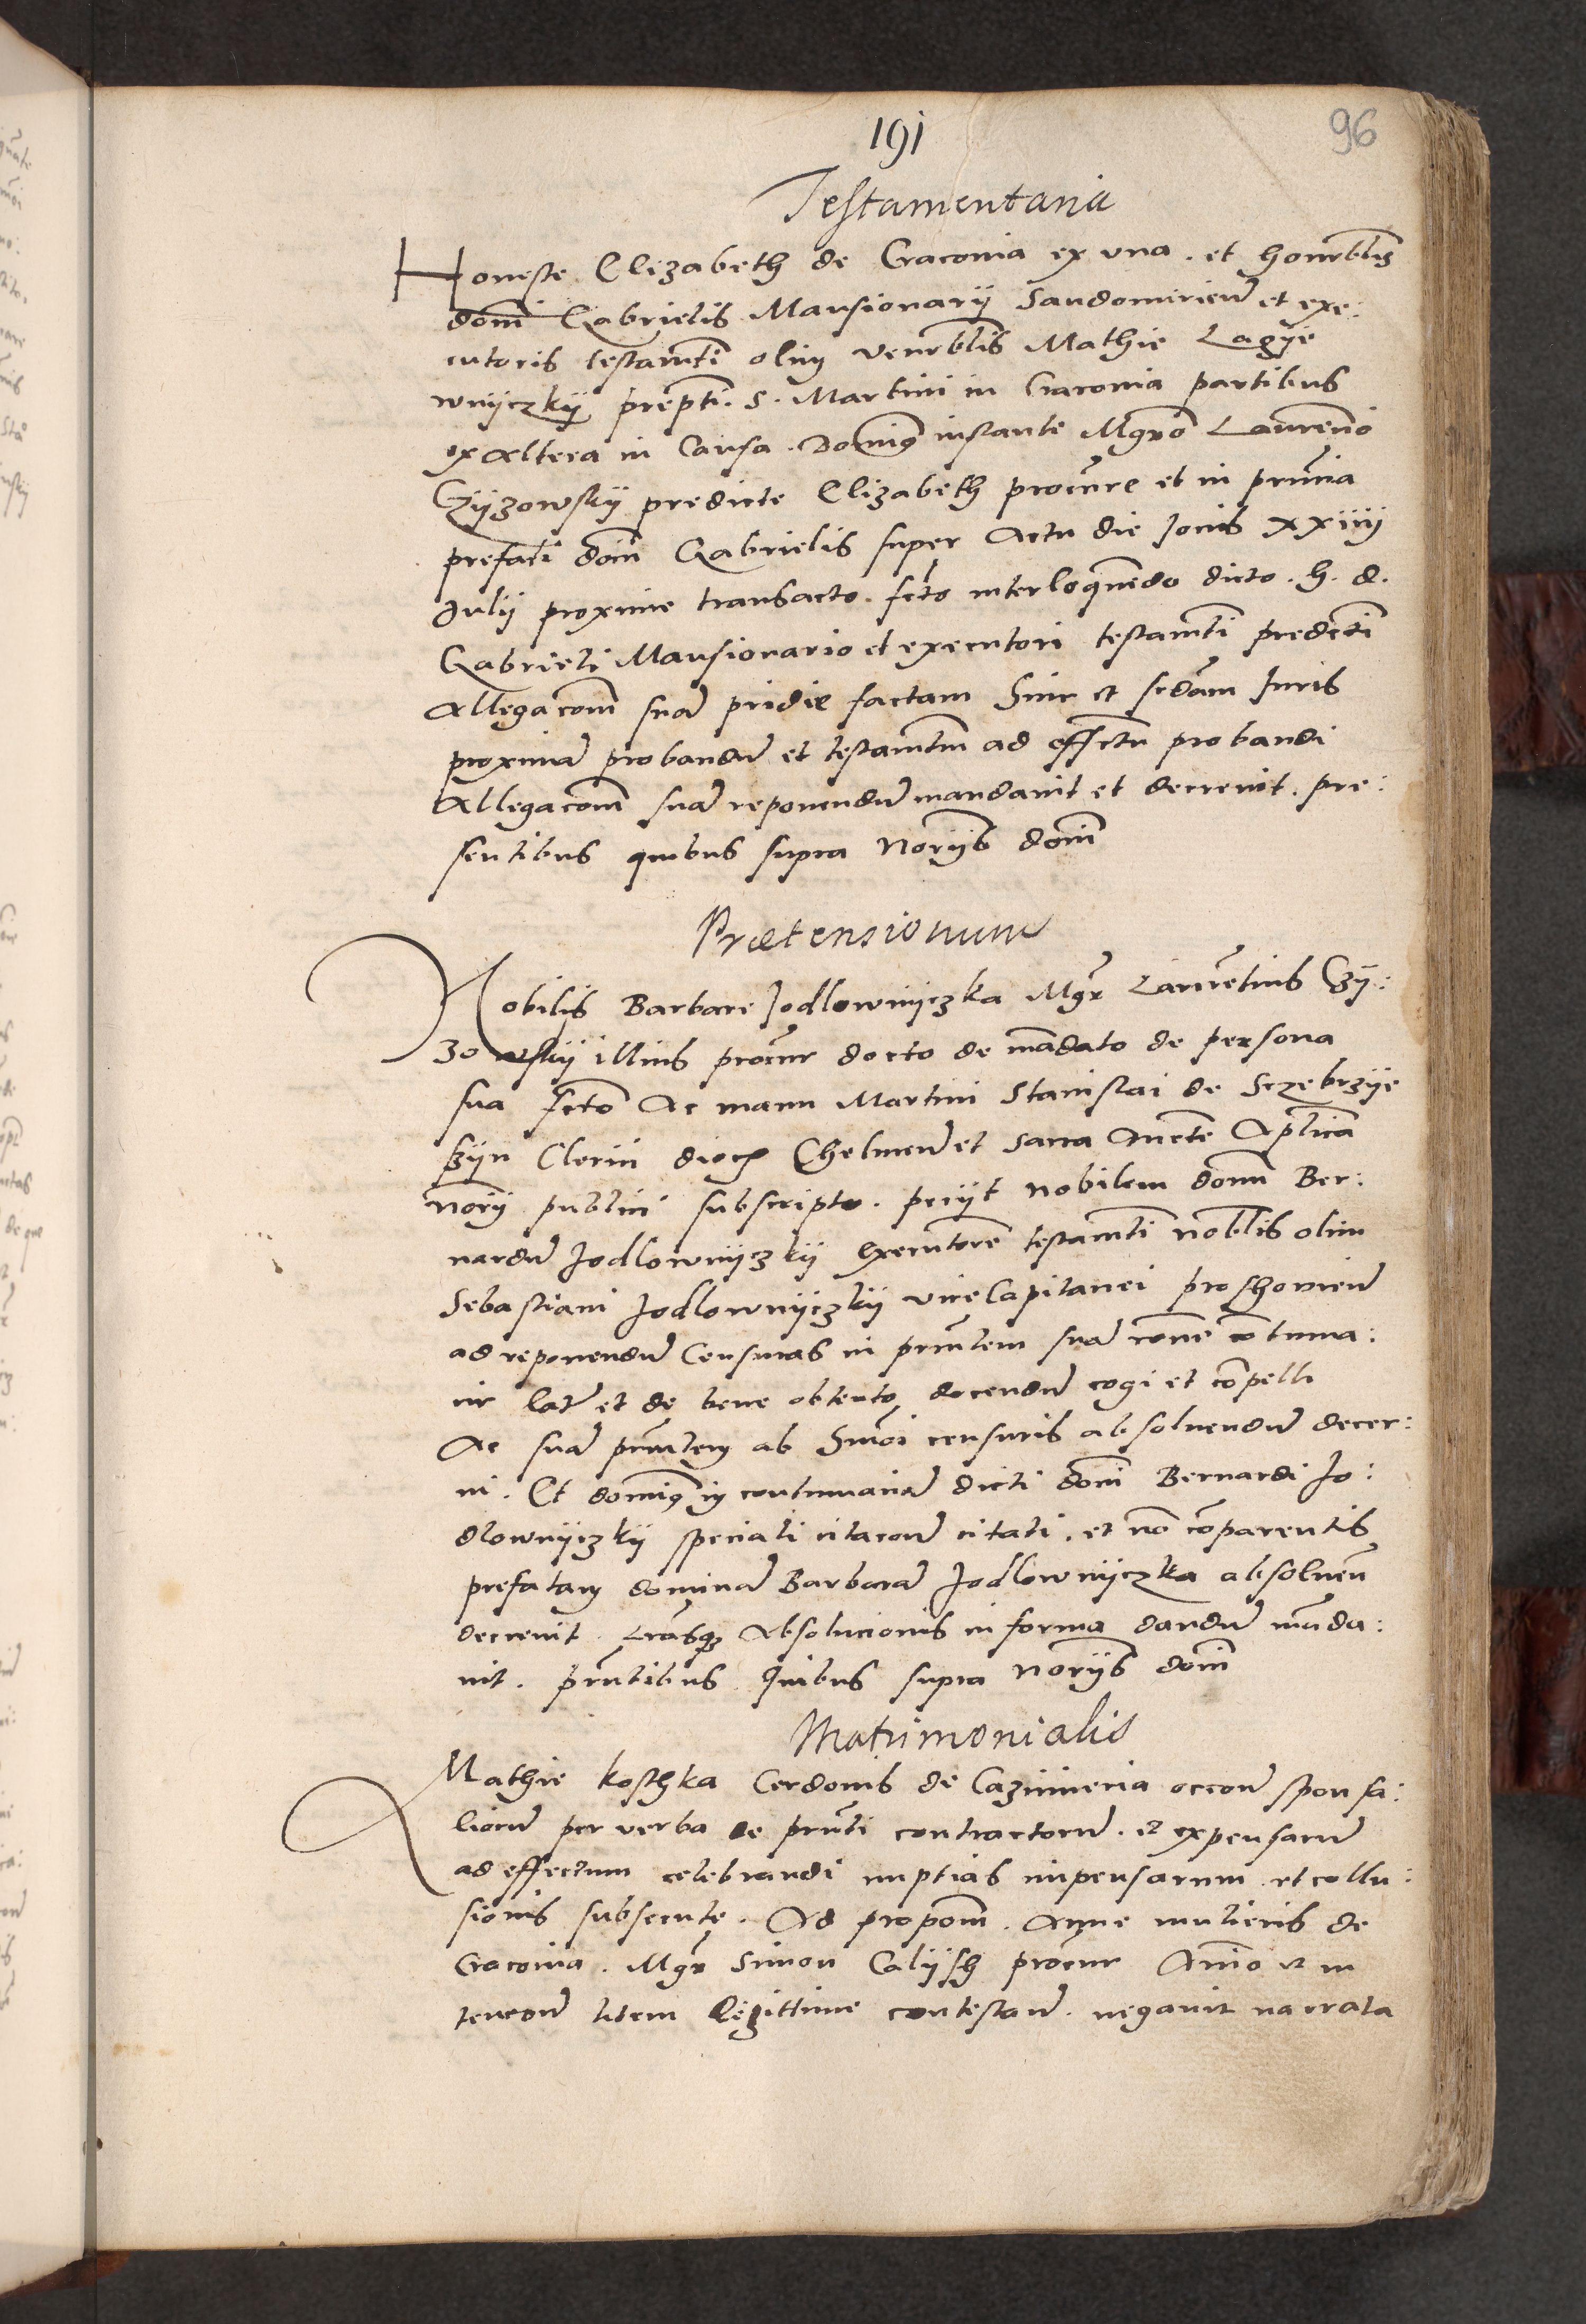 191
96
Testamentaria
Honeste Elizabeth de Cracovia ex una . et honrblis
domi Gabrielis Mansionarij Sandomirien et exe:
cutoris testamti olim venrblis Mathie Lagye
wnyczky prepti . S . Martini in Cracovia partibus
ex Altera in Causa . Dominus instante Mgro Laurentio
Czyzowsky predicte Elizabeth procure et in pruncia
prefati domi Gabrielis super Actu die Jovis xxiiij
Julij proxime transacto . fcto interloquendo dicto . h . d .
Gabrieli Mansionario et executori testamti predicti
Allegacom sua pridie factam hinc et sedam Juris
proximu probandu et testamtum ad effectu probandi
Allegacom sua reponendu mandavit et decrevit . pre:
sentibus quibus supra Norijs domi
Prætensionum
Nobilis Barbare Jodlownyczka Mgr Laurentius Czy:
zowsky illius procur docto de mandato de persona
sua fcto Ac manu Martini Stanislai de Sczebrzye
szyn Clerici dioc Chelmen et sacra Aucte Aplica
norij publici subscripto . peciyt nobilem domu Ber:
nardu Jodlownyczky Executore testamti noblis olim
Sebastiani Jodlownyczky vice Capitanei proshovien
ad reponendu Censuras in prncipalem sua rone contuma:
cie lat et de bene obtento docendu cogi et compelli
Ac sua principalem ab hmoi censuris absolvendu decer:
ni . Et dominus in contumacia dicti domi Bernardi Jo:
dlownyczky speciali citacone citati . et non comparentis
prefatam domina Barbara Jodlownyczka absolven
decrevit Lrasq Absolucionis in forma dandu manda:
vit . prntibus Quibus supra Norijs domi
Matrimonialis
Mathie Koschka Cerdonis de Cazimieria occone sponsa:
lioru per verba de prnti contractoru . et expensaru
ad effectum celebrandi nuptias impensarum et collu:
sionis subsecute . Ad propom . Anne mulieris de
Cracovia . Mgr Simon Calysch procur Animo et in
tencone litem legittime contestan . negavit narrata